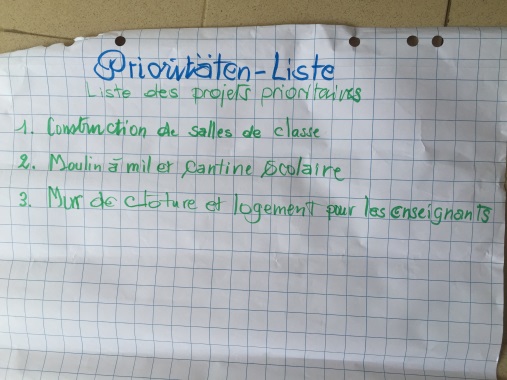 Prioritäten-Liste
Liste des projets prioritaires
1. Construction de salles de classe
2. Moulin à mil et cantine scolaire
3. Mur de cloture et logement pour les enseignants